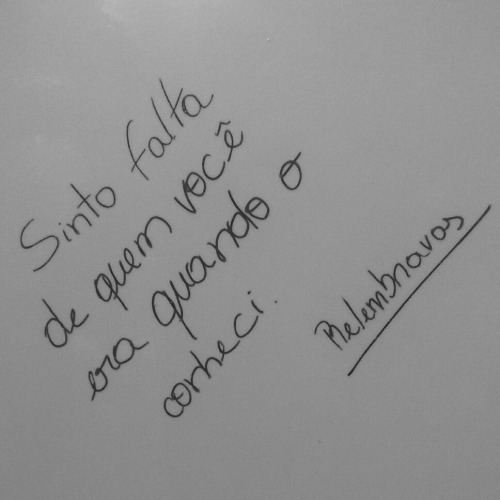 Sinto falta
de quem você
era quando o
conheci.
Relembravas